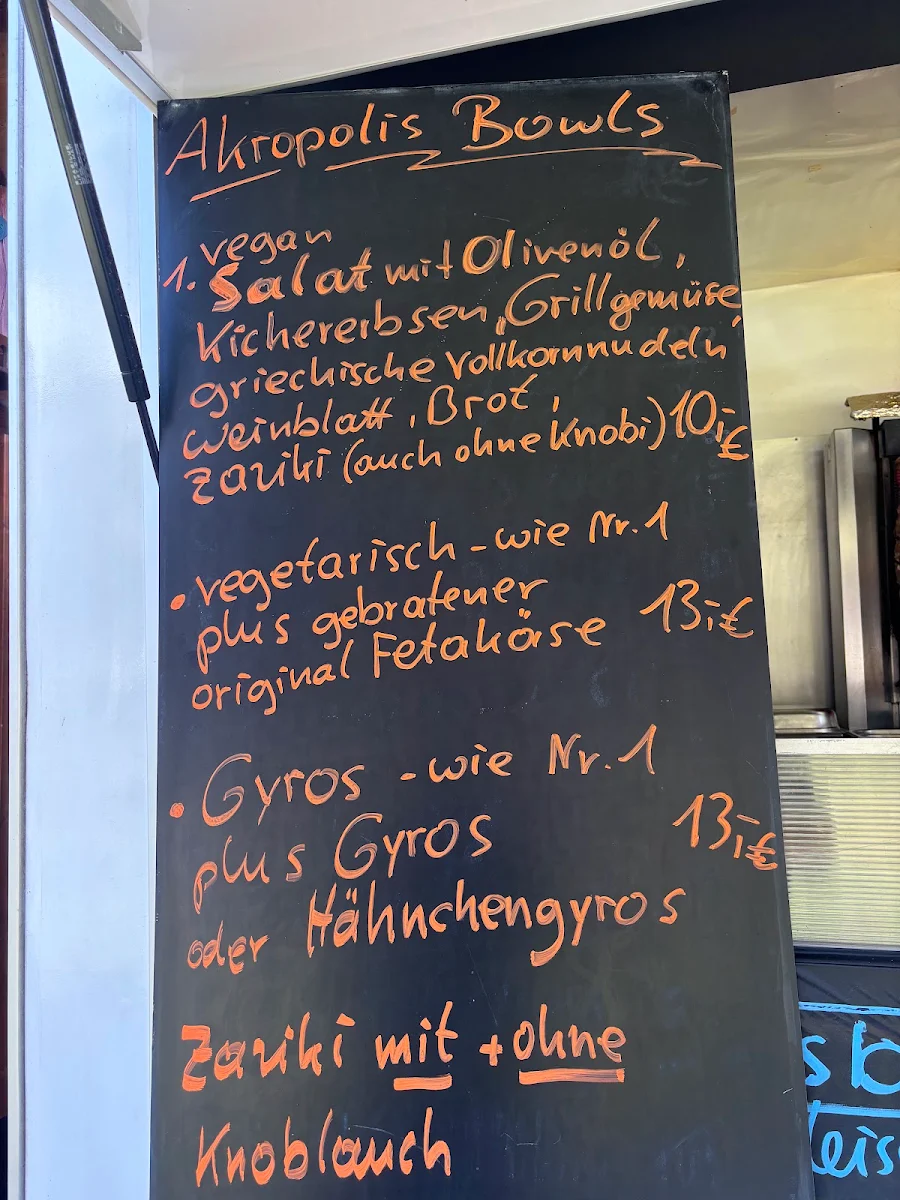 Akropolis Bowls
vegan
1. Salat mit Olivenöl,
Kichererbsen, Grillgemüse,
griechische Vollkornnudeln
Weinblatt, Brot,
Zaziki (auch ohne Knobi) 10,-€
• vegetarisch - wie Nr. 1
plus gebratener
original Fetakäse 13,-€
• Gyros - wie Nr. 1
plus Gyros 13,-€
oder Hähnchengyros
Zaziki mit + ohne
Knoblauch